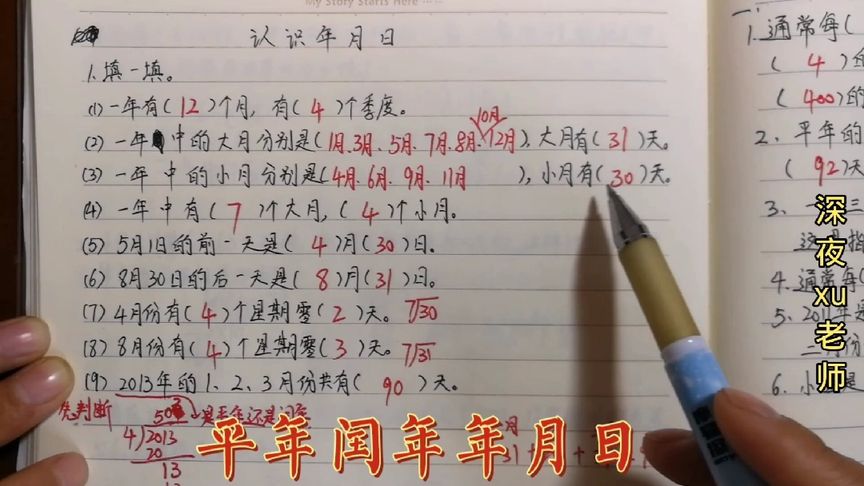 My Story Starts Here
认识年月日
1.填一填。
(1)一年有(12)个月,有(4)个季度。
10月
(2)一年中的大月分别是(1月、3月、5月、7月、8月、12月),大月有(31)天。
(3)一年中的小月分别是(4月、6月、9月、11月),小月有(30)天。
(4)一年中有(7)个大月,(4)个小月。
(5)5月1日的前一天是(4)月(30)日.
(6)8月30日的后一天是(8)月(31)日。
(7)4月份有(4)个星期零(2)天。7√30
(8)8月份有(4)个星期零(3)天。7√31
(9)2013年的1、2、3月份共有(90)天。
先判断
是平年还是闰年
503
4)2013
20
13
平年闰年年月日
一、
1.通常每(
(4)的
(400)的
2、平年的
(92)天
3、一
4.通常每(
5、2011年
二月份
6、小
深夜xu老师